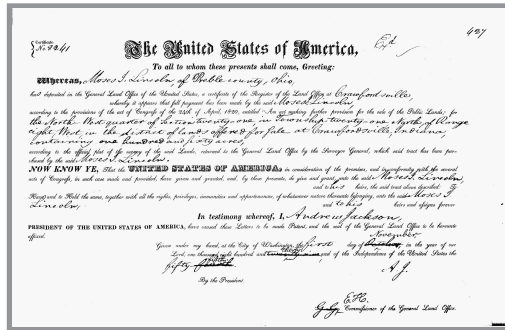 427
Certificate
No. 9241
Ex'd
The United States of America,
To all to whom these presents shall come, Greeting:
Whereas, Moses I. Lincoln of Preble county, Ohio,
hath deposited in the General Land Office of the United States, a certificate of the Register of the Land Office at Crawfordsville,
whereby it appears that full payment has been made by the said Moses I. Lincoln,
according to the provisions of the act of Congress of the 24th of April, 1820, entitled "An act making further provision for the sale of the Public Lands," for
the North West quarter of Section twenty-one, in Township twenty-one North, of Range
eight West, in the district of lands offered for sale at Crawfordsville, Indiana,
containing one hundred and sixty acres,
according to the official plat of the survey of the said Lands, returned to the General Land Office by the Surveyor General, which said tract has been pur-
chased by the said Moses I. Lincoln.
NOW KNOW YE, That the UNITED STATES OF AMERICA, in consideration of the premises, and in conformity with the several
acts of Congress, in such case made and provided, have given and granted, and, by these presents, do give and grant, unto the said Moses I. Lincoln,
and his heirs, the said tract above described: To
Have and to Hold the same, together with all the rights, privileges, immunities and appurtenances, of whatsoever nature thereunto belonging, unto the said Moses I.
Lincoln, and to his heirs and assigns forever
In testimony whereof, I, Andrew Jackson,
PRESIDENT OF THE UNITED STATES OF AMERICA, have caused these Letters to be made Patent, and the seal of the General Land Office to be hereunto
affixed.
November
Given under my hand, at the City of Washington, the first day of October, in the year of our
Lord, one thousand eight hundred and thirty and of the Independence of the United States the
fifty fifth
A. J.
By the President.
E. H.
Commissioner of the General Land Office.